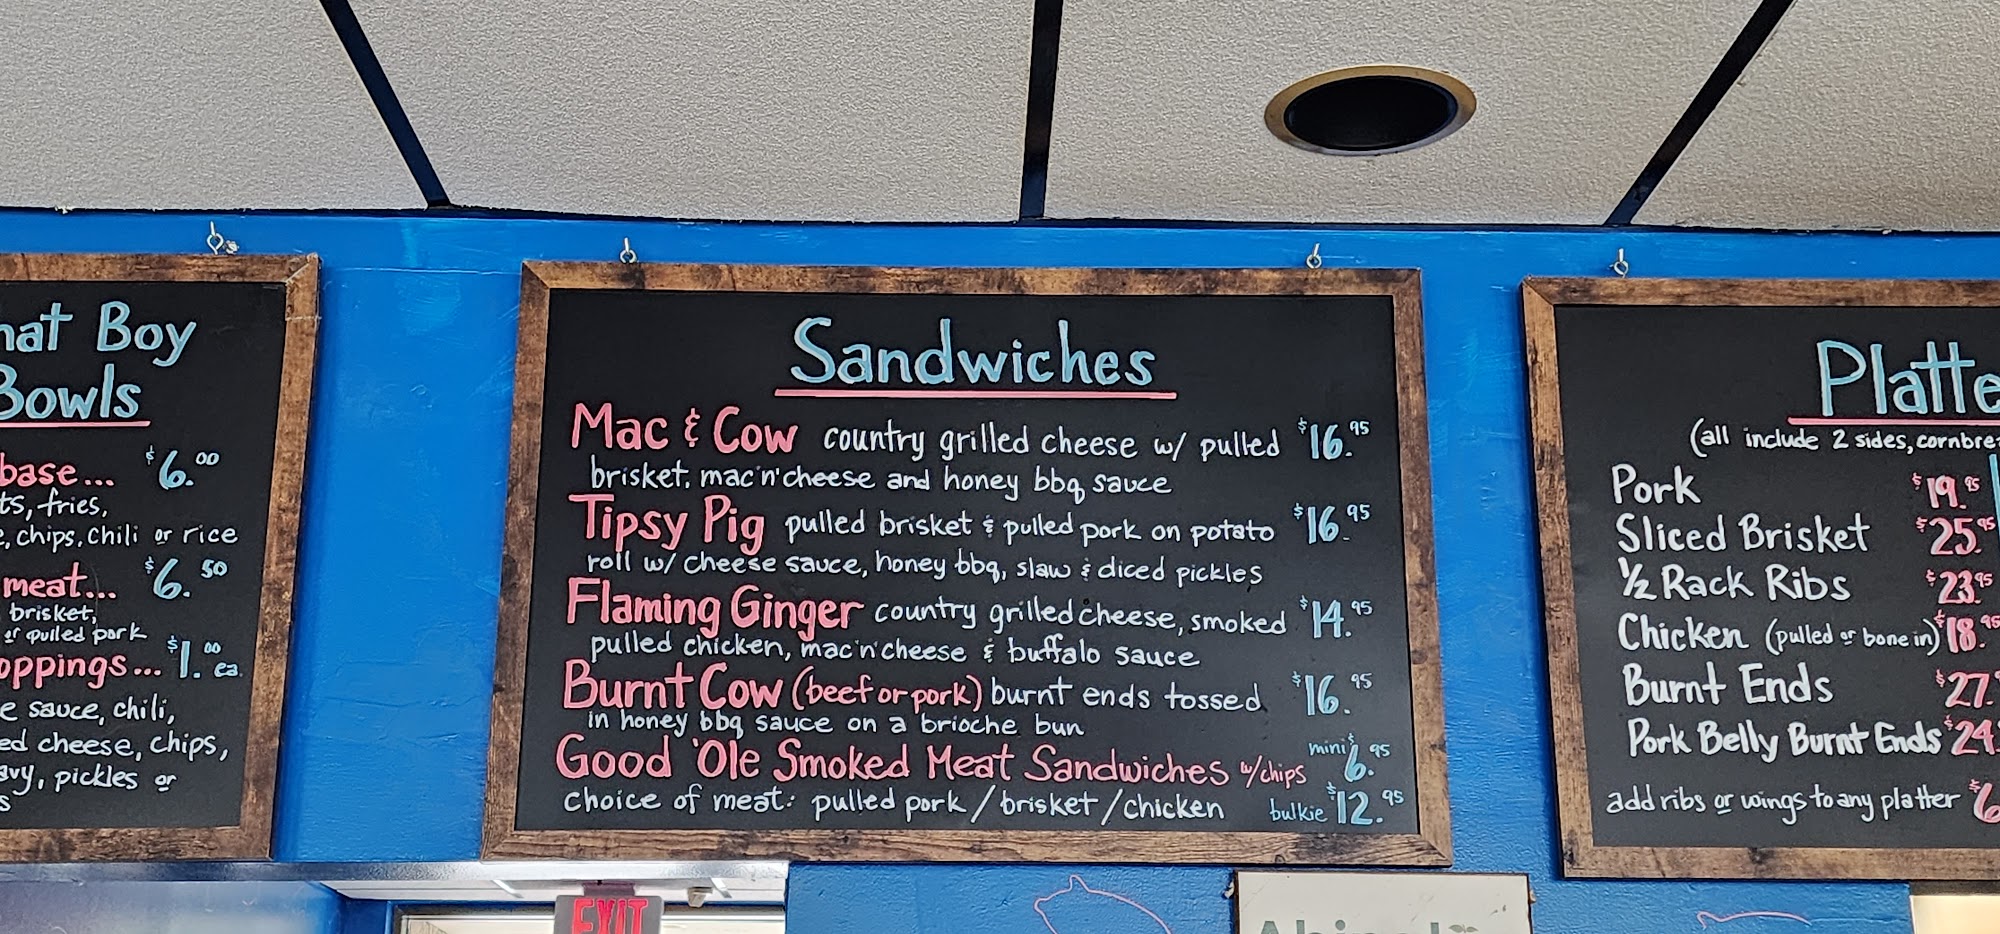 Boy
Bowls
base... $6.00
fries,
chips, chili or rice
meat... $6.50
brisket,
or pulled pork
$1.00 ea.
sauce, chili,
cheese, chips,
pickles or
Sandwiches
Mac & Cow country grilled cheese w/ pulled $16.95
brisket, mac'n'cheese and honey bbq sauce
Tipsy Pig pulled brisket & pulled pork on potato $16.95
roll w/ cheese sauce, honey bbq, slaw & diced pickles
Flaming Ginger country grilled cheese, smoked $14.95
pulled chicken, mac'n'cheese & buffalo sauce
Burnt Cow (beef or pork) burnt ends tossed $16.95
in honey bbq sauce on a brioche bun
Good 'Ole Smoked Meat Sandwiches w/chips mini $6.95
choice of meat: pulled pork / brisket / chicken bulkie $12.95
Platte
(all include 2 sides, cornbre
Pork $19.95
Sliced Brisket $25.95
1/2 Rack Ribs $23.95
Chicken (pulled or bone in) $18.95
Burnt Ends $27.
Pork Belly Burnt Ends $24.
add ribs or wings to any platter $6
EXIT